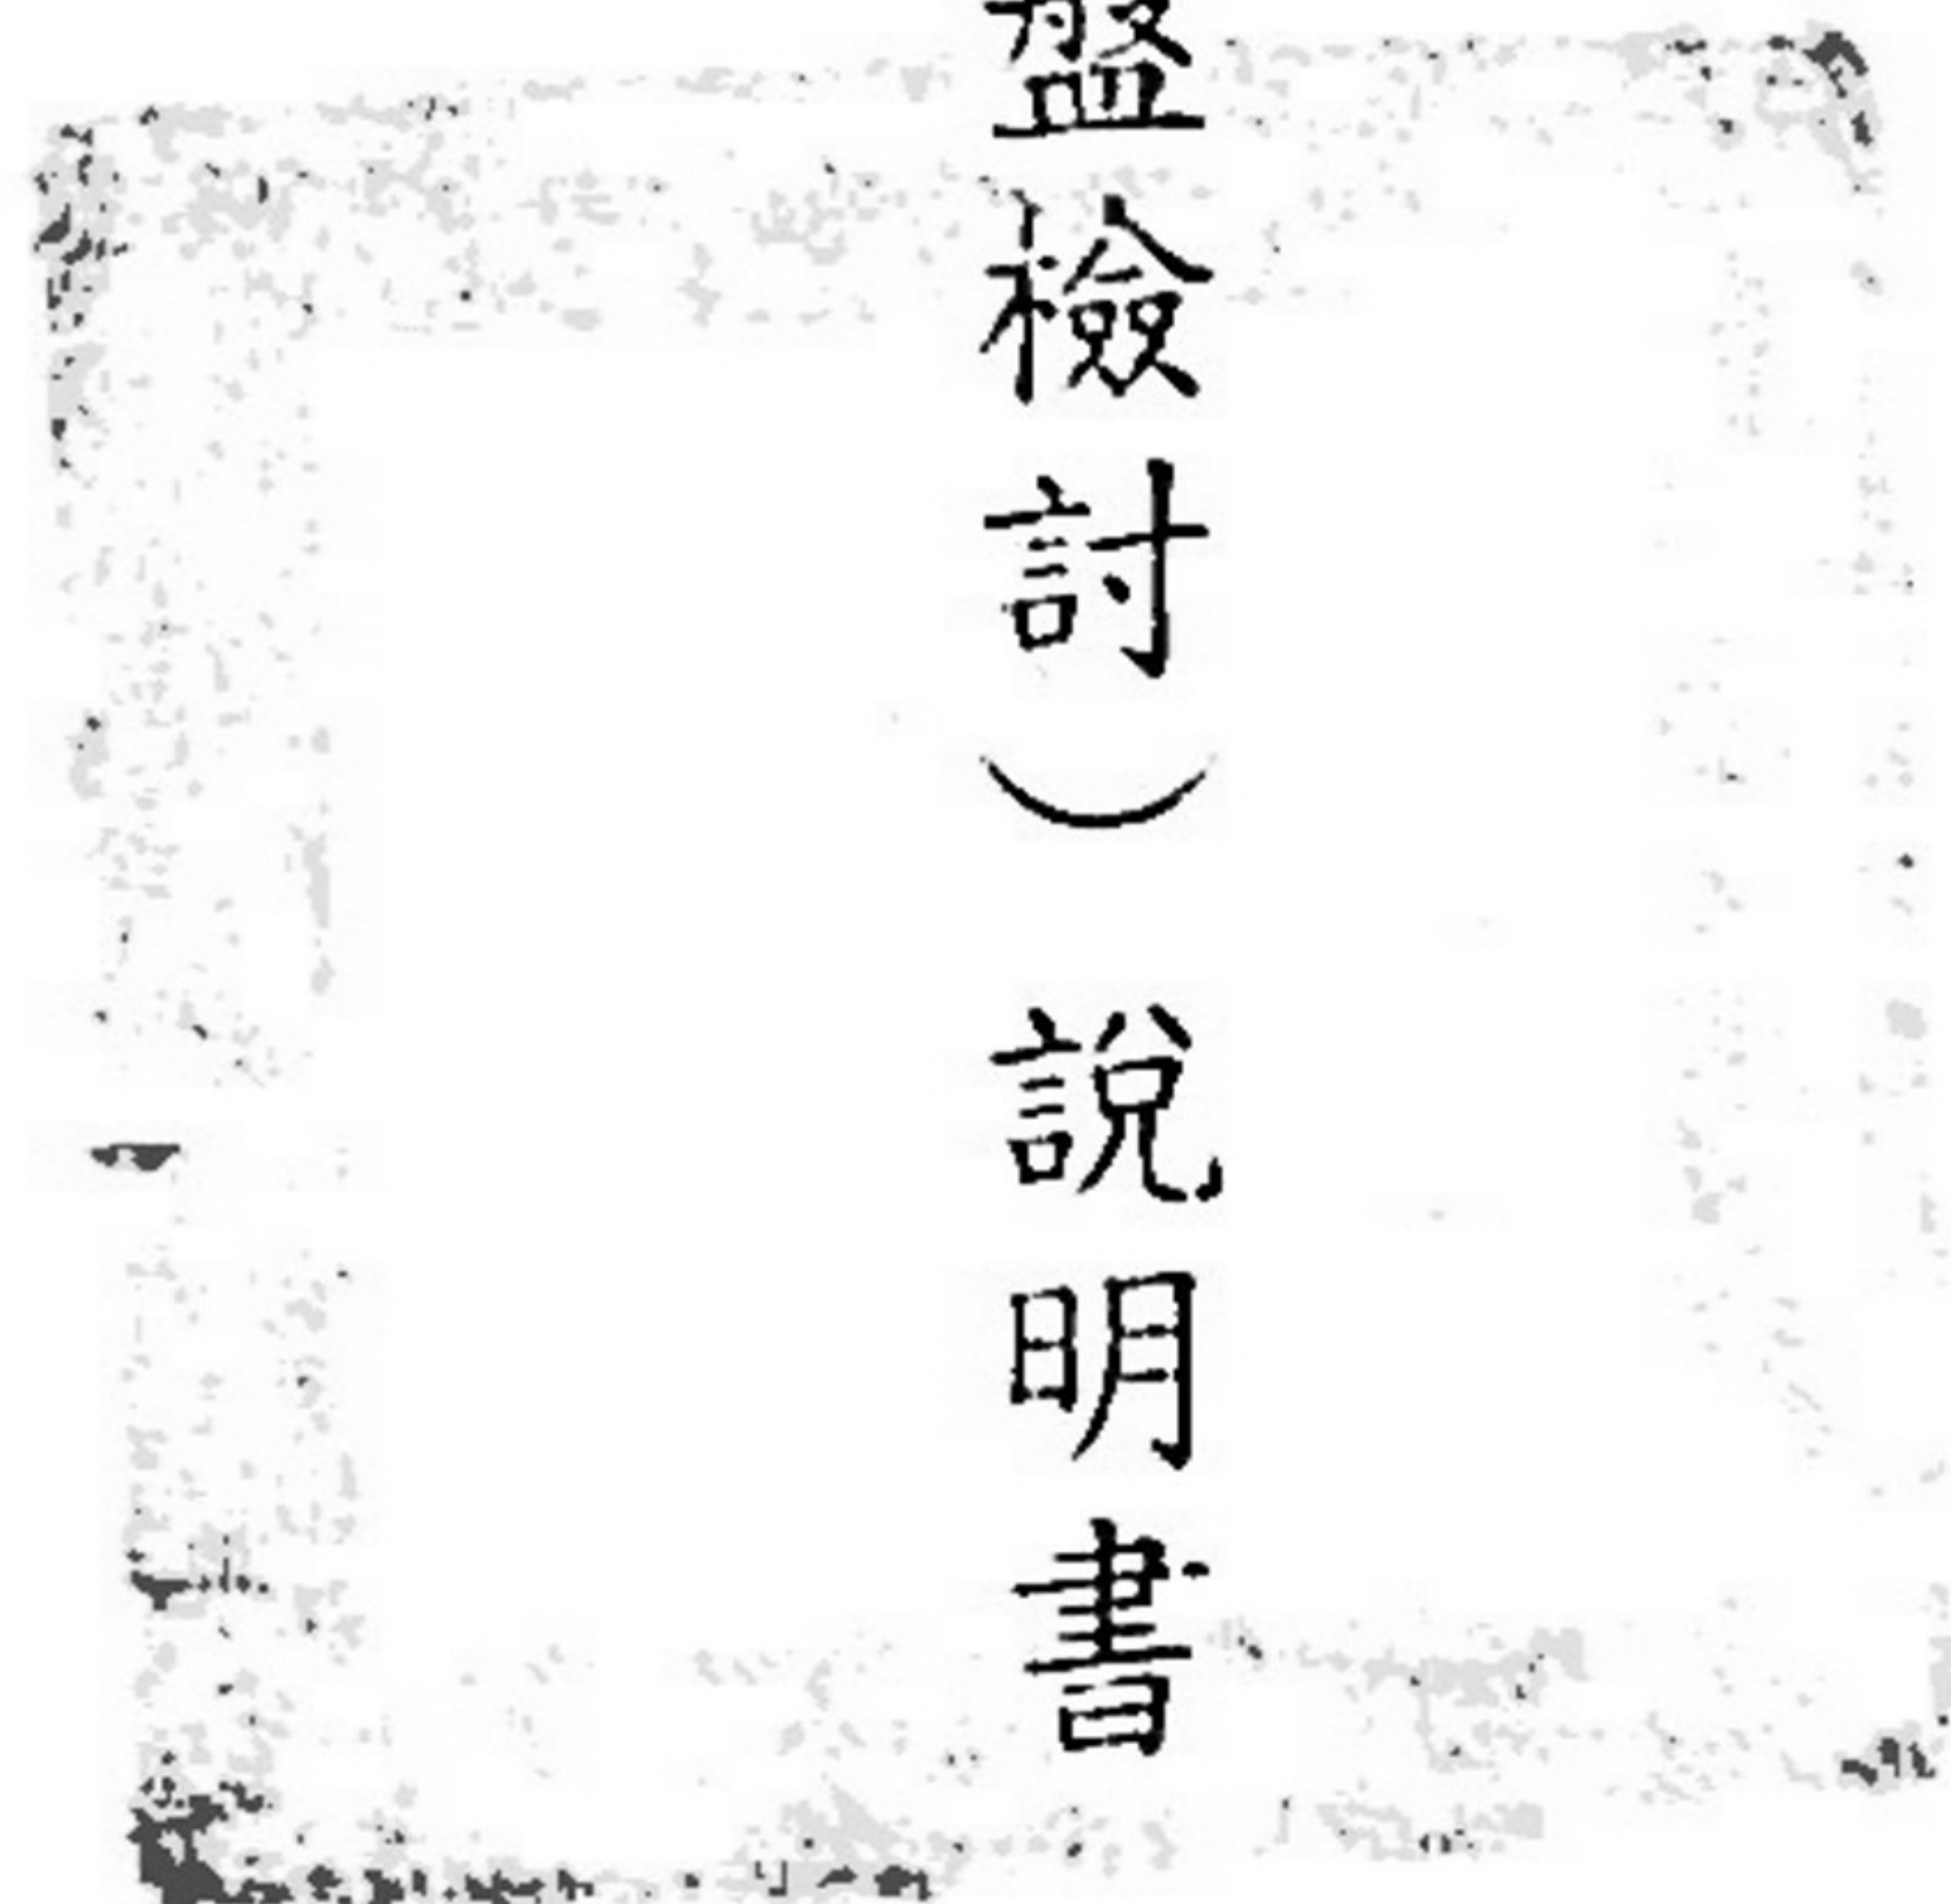 盤檢討）　說明書